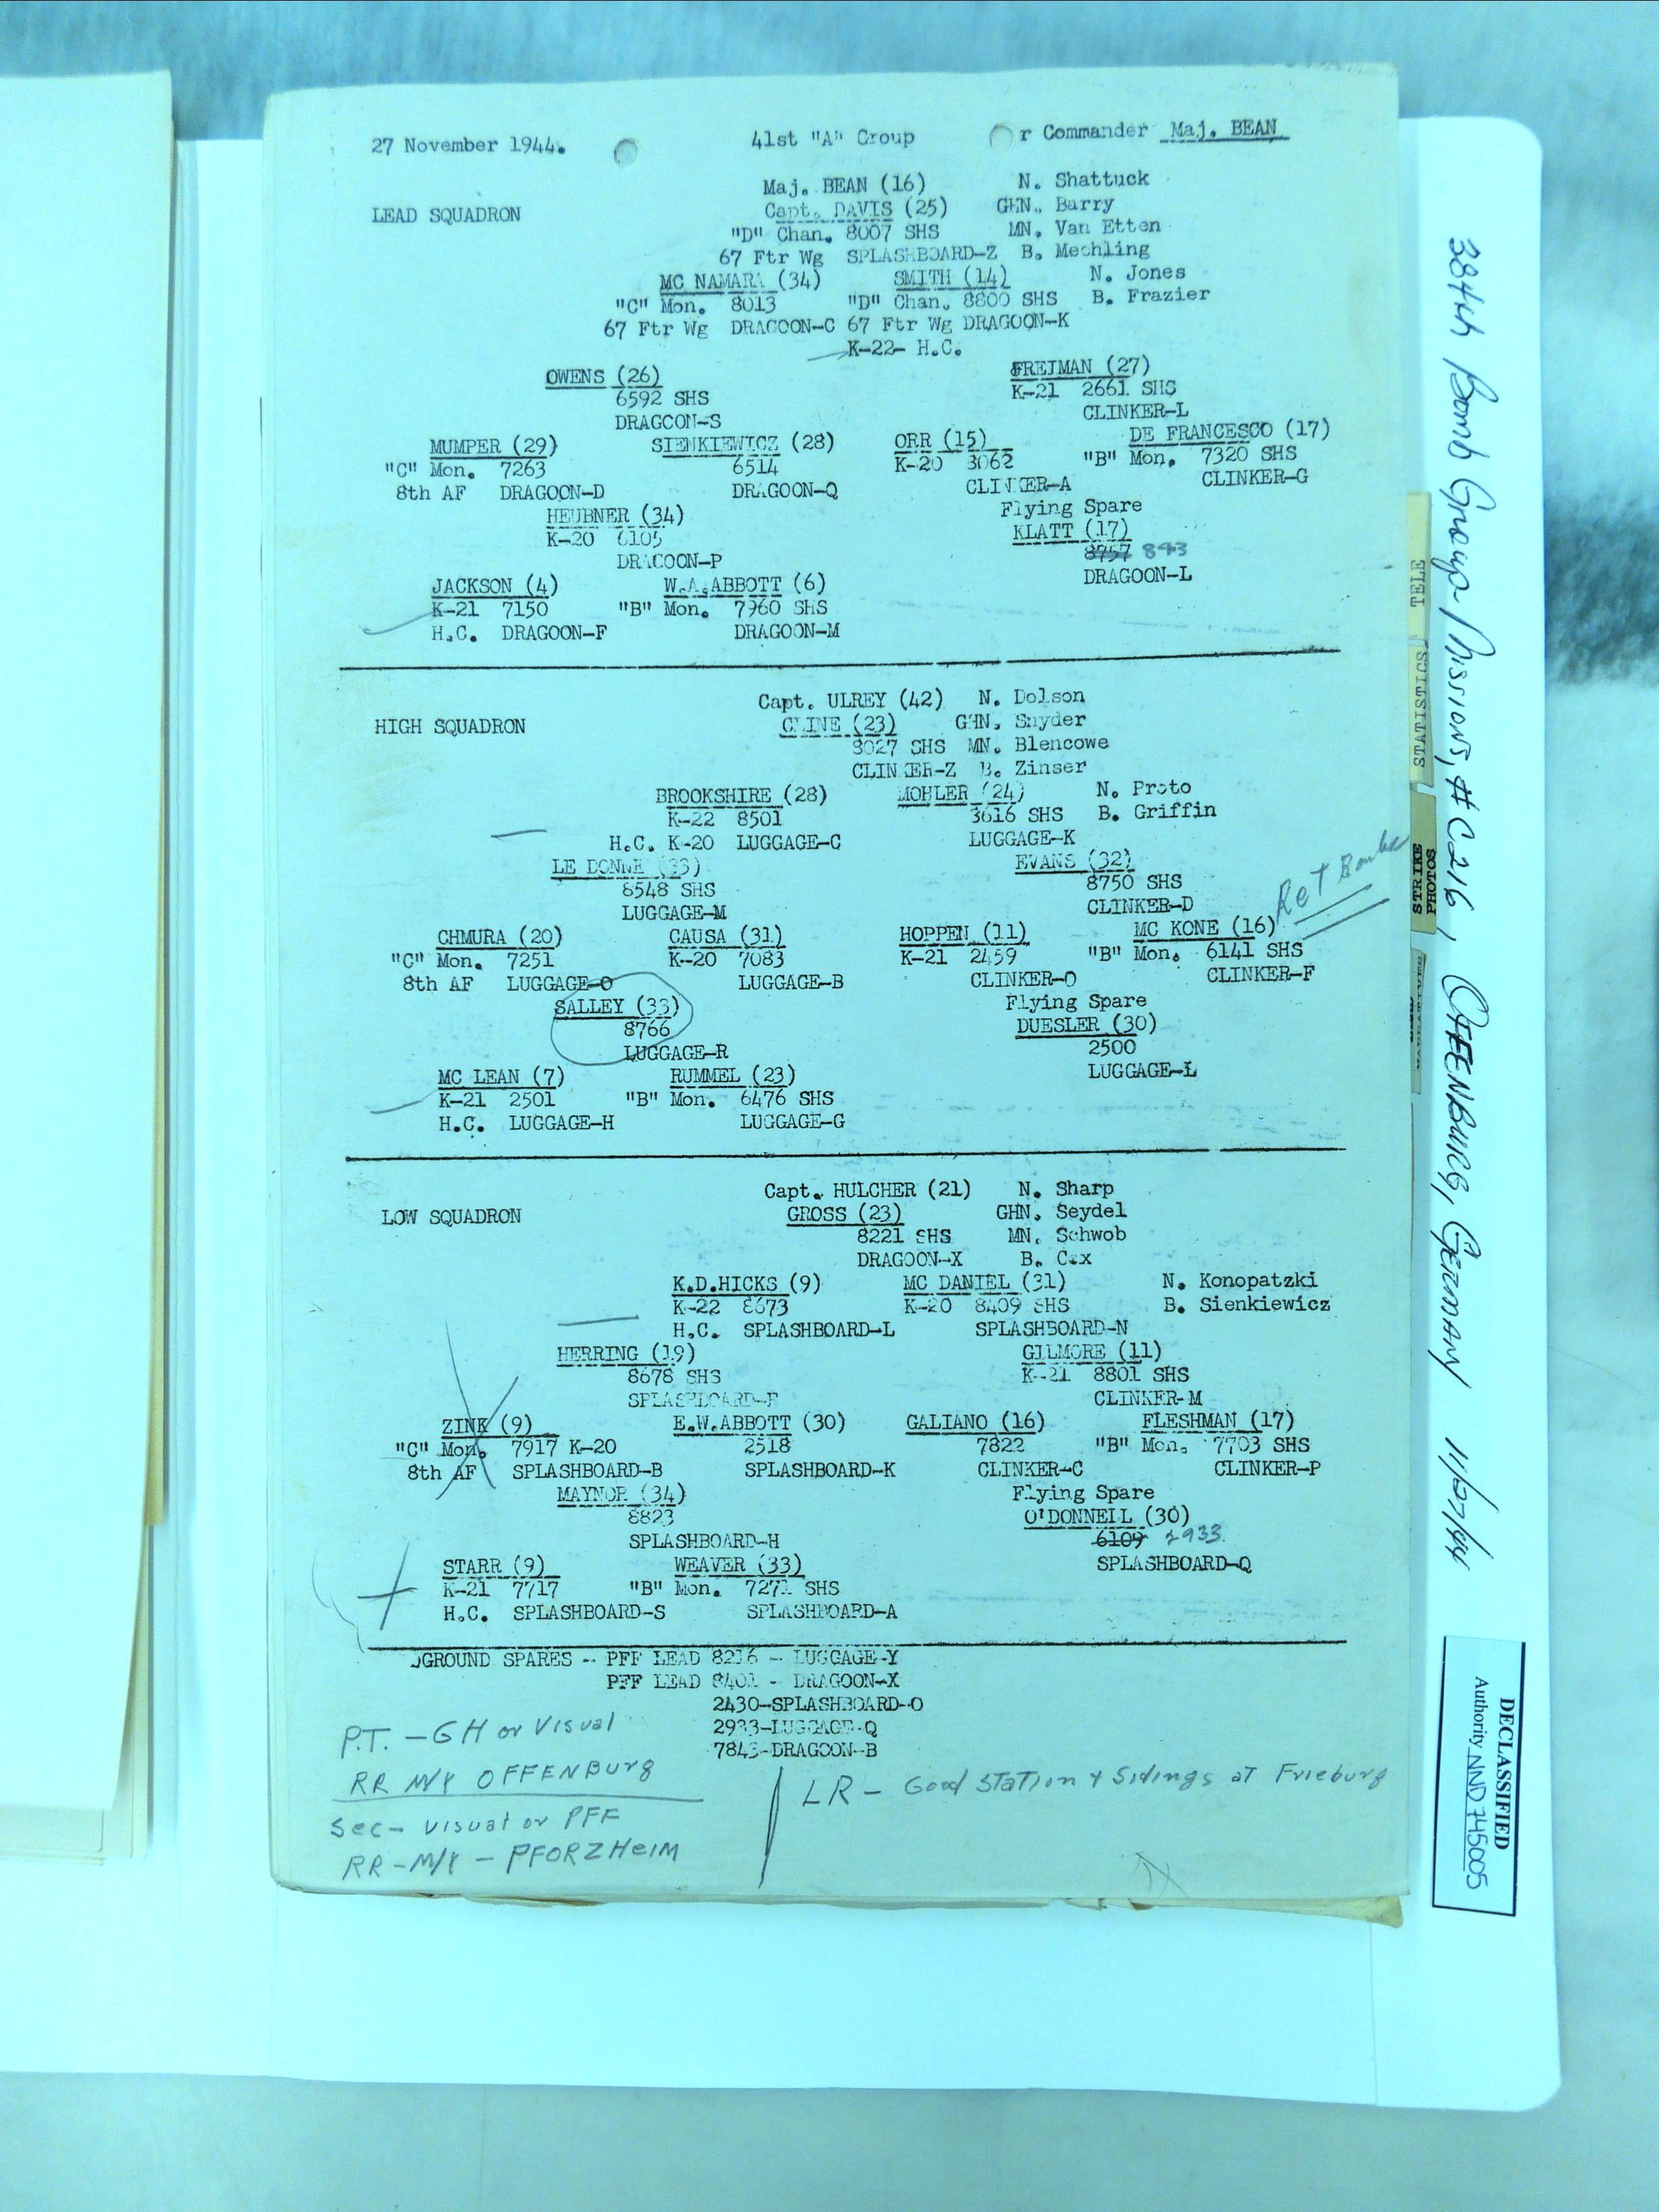 27 November 1944. 41st "A" Group r Commander Maj. BEAN
Maj. BEAN (16) N. Shattuck
LEAD SQUADRON Capt. DAVIS (25) GHN. Barry
"D" Chan. 8007 SHS MN. Van Etten
67 Ftr Wg SPLASHBOARD-Z B. Mechling
MC NAMARA (34) SMITH (14) N. Jones
"C" Mon. 8013 "D" Chan. 8800 SHS B. Frazier
67 Ftr Wg DRAGOON-C 67 Ftr Wg DRAGOON-K
K-22- H.C.
OWENS (26) FREIMAN (27)
6592 SHS K-21 2661 SHS
DRAGOON-S CLINKER-L
MUMPER (29) SIENKIEWICZ (28) ORR (15) DE FRANCESCO (17)
"C" Mon. 7263 6514 K-20 3062 "B" Mon. 7320 SHS
8th AF DRAGOON-D DRAGOON-Q CLINKER-A CLINKER-G
HEUBNER (34) Flying Spare
K-20 6105 KLATT (17)
8757 843
DRAGOON-P DRAGOON-L
JACKSON (4) W.A.ABBOTT (6)
K-21 7150 "B" Mon. 7960 SHS
H.C. DRAGOON-F DRAGOON-M
Capt. ULREY (42) N. Dolson
HIGH SQUADRON CLINE (23) GHN. Snyder
8027 SHS MN. Blencowe
CLINKER-Z B. Zinser
BROOKSHIRE (28) MOHLER (24) N. Proto
K-22 8501 3616 SHS B. Griffin
H.C. K-20 LUGGAGE-C LUGGAGE-K
LE DONNE (33) EVANS (32)
8548 SHS 8750 SHS
LUGGAGE-M CLINKER-D
Ret Bombs
CHMURA (20) CAUSA (31) HOPPEN (11) MC KONE (16)
"C" Mon. 7251 K-20 7083 K-21 2459 "B" Mon. 6141 SHS
8th AF LUGGAGE-O LUGGAGE-B CLINKER-O CLINKER-F
SALLEY (33) Flying Spare
8766 DUESLER (30)
LUGGAGE-R 2500
LUGGAGE-L
MC LEAN (7) RUMMEL (23)
K-21 2501 "B" Mon. 6476 SHS
H.C. LUGGAGE-H LUGGAGE-G
Capt. HULCHER (21) N. Sharp
LOW SQUADRON GROSS (23) GHN. Seydel
8221 SHS MN. Schwob
DRAGOON-X B. Cox
K.D.HICKS (9) MC DANIEL (31) N. Konopatzki
K-22 8673 K-20 8409 SHS B. Sienkiewicz
H.C. SPLASHBOARD-L SPLASHBOARD-N
HERRING (19) GILMORE (11)
8678 SHS K-21 8801 SHS
SPLASHBOARD-F CLINKER-M
ZINK (9) E.W.ABBOTT (30) GALIANO (16) FLESHMAN (17)
"C" Mon. 7917 K-20 2518 7822 "B" Mon. 7703 SHS
8th AF SPLASHBOARD-B SPLASHBOARD-K CLINKER-C CLINKER-P
MAYNOR (34) Flying Spare
8823 O'DONNELL (30)
6109 2933
SPLASHBOARD-H SPLASHBOARD-Q
STARR (9) WEAVER (33)
K-21 7717 "B" Mon. 7271 SHS
H.C. SPLASHBOARD-S SPLASHBOARD-A
GROUND SPARES -- PFF LEAD 8216 - LUGGAGE-Y
PFF LEAD 8401 - DRAGOON-X
2430-SPLASHBOARD-O
2933-LUGGAGE-Q
7843-DRAGOON-B
P.T. - GH or Visual
RR M/Y OFFENBurg
Sec- visual or PFF
RR-M/Y - PFORZHeim
LR - Good Station & Sidings at Frieburg
TELE
STATISTICS
STRIKE PHOTOS
384th Bomb Group Missions, #C216, OFFENBURG, GERMANY 11/27/44
DECLASSIFIED
Authority NND 745005